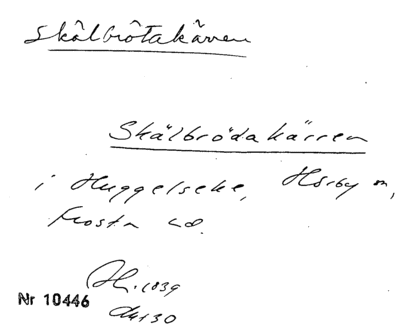 Skålbrötakärren
Skälbrödakärren
i Huggelseke, Hörby sn,
Frosta hd.
Nr 10446